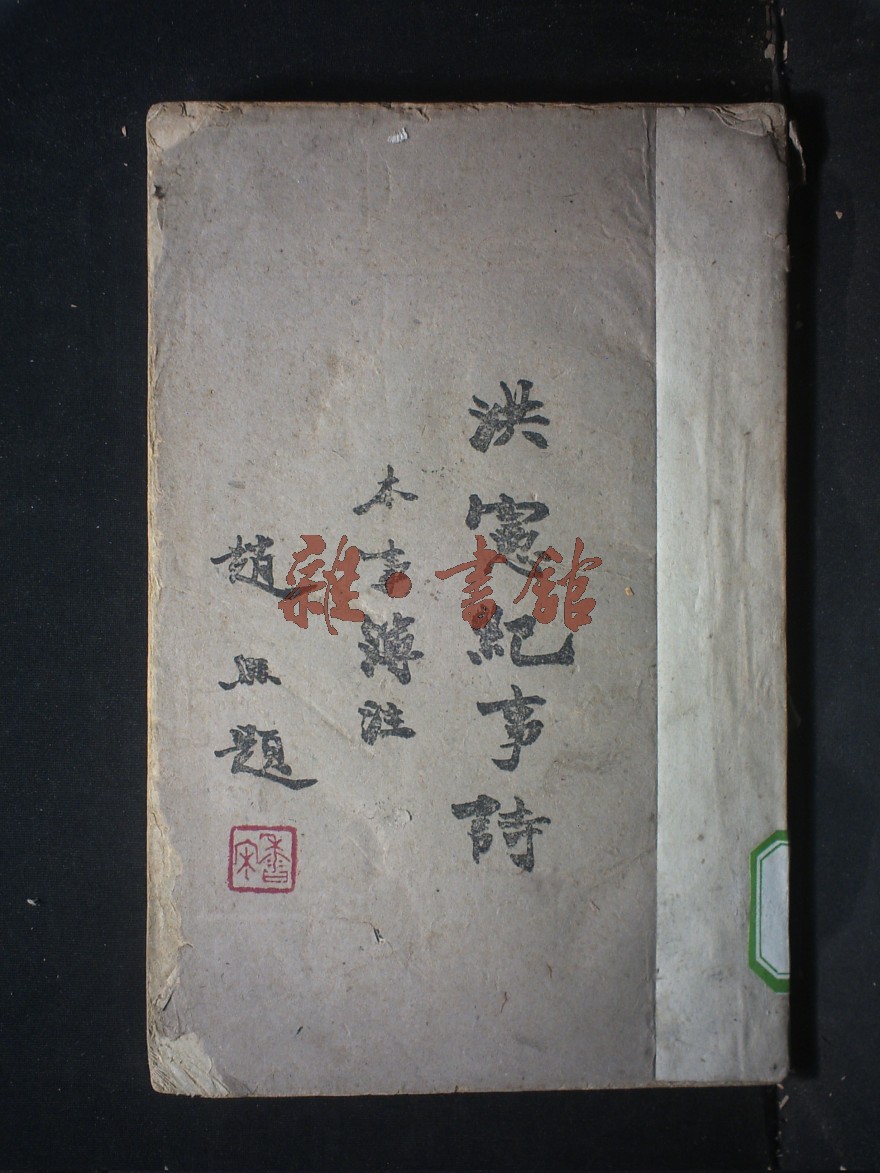 洪憲紀事詩
本事簿注
趙 題
雜·書館